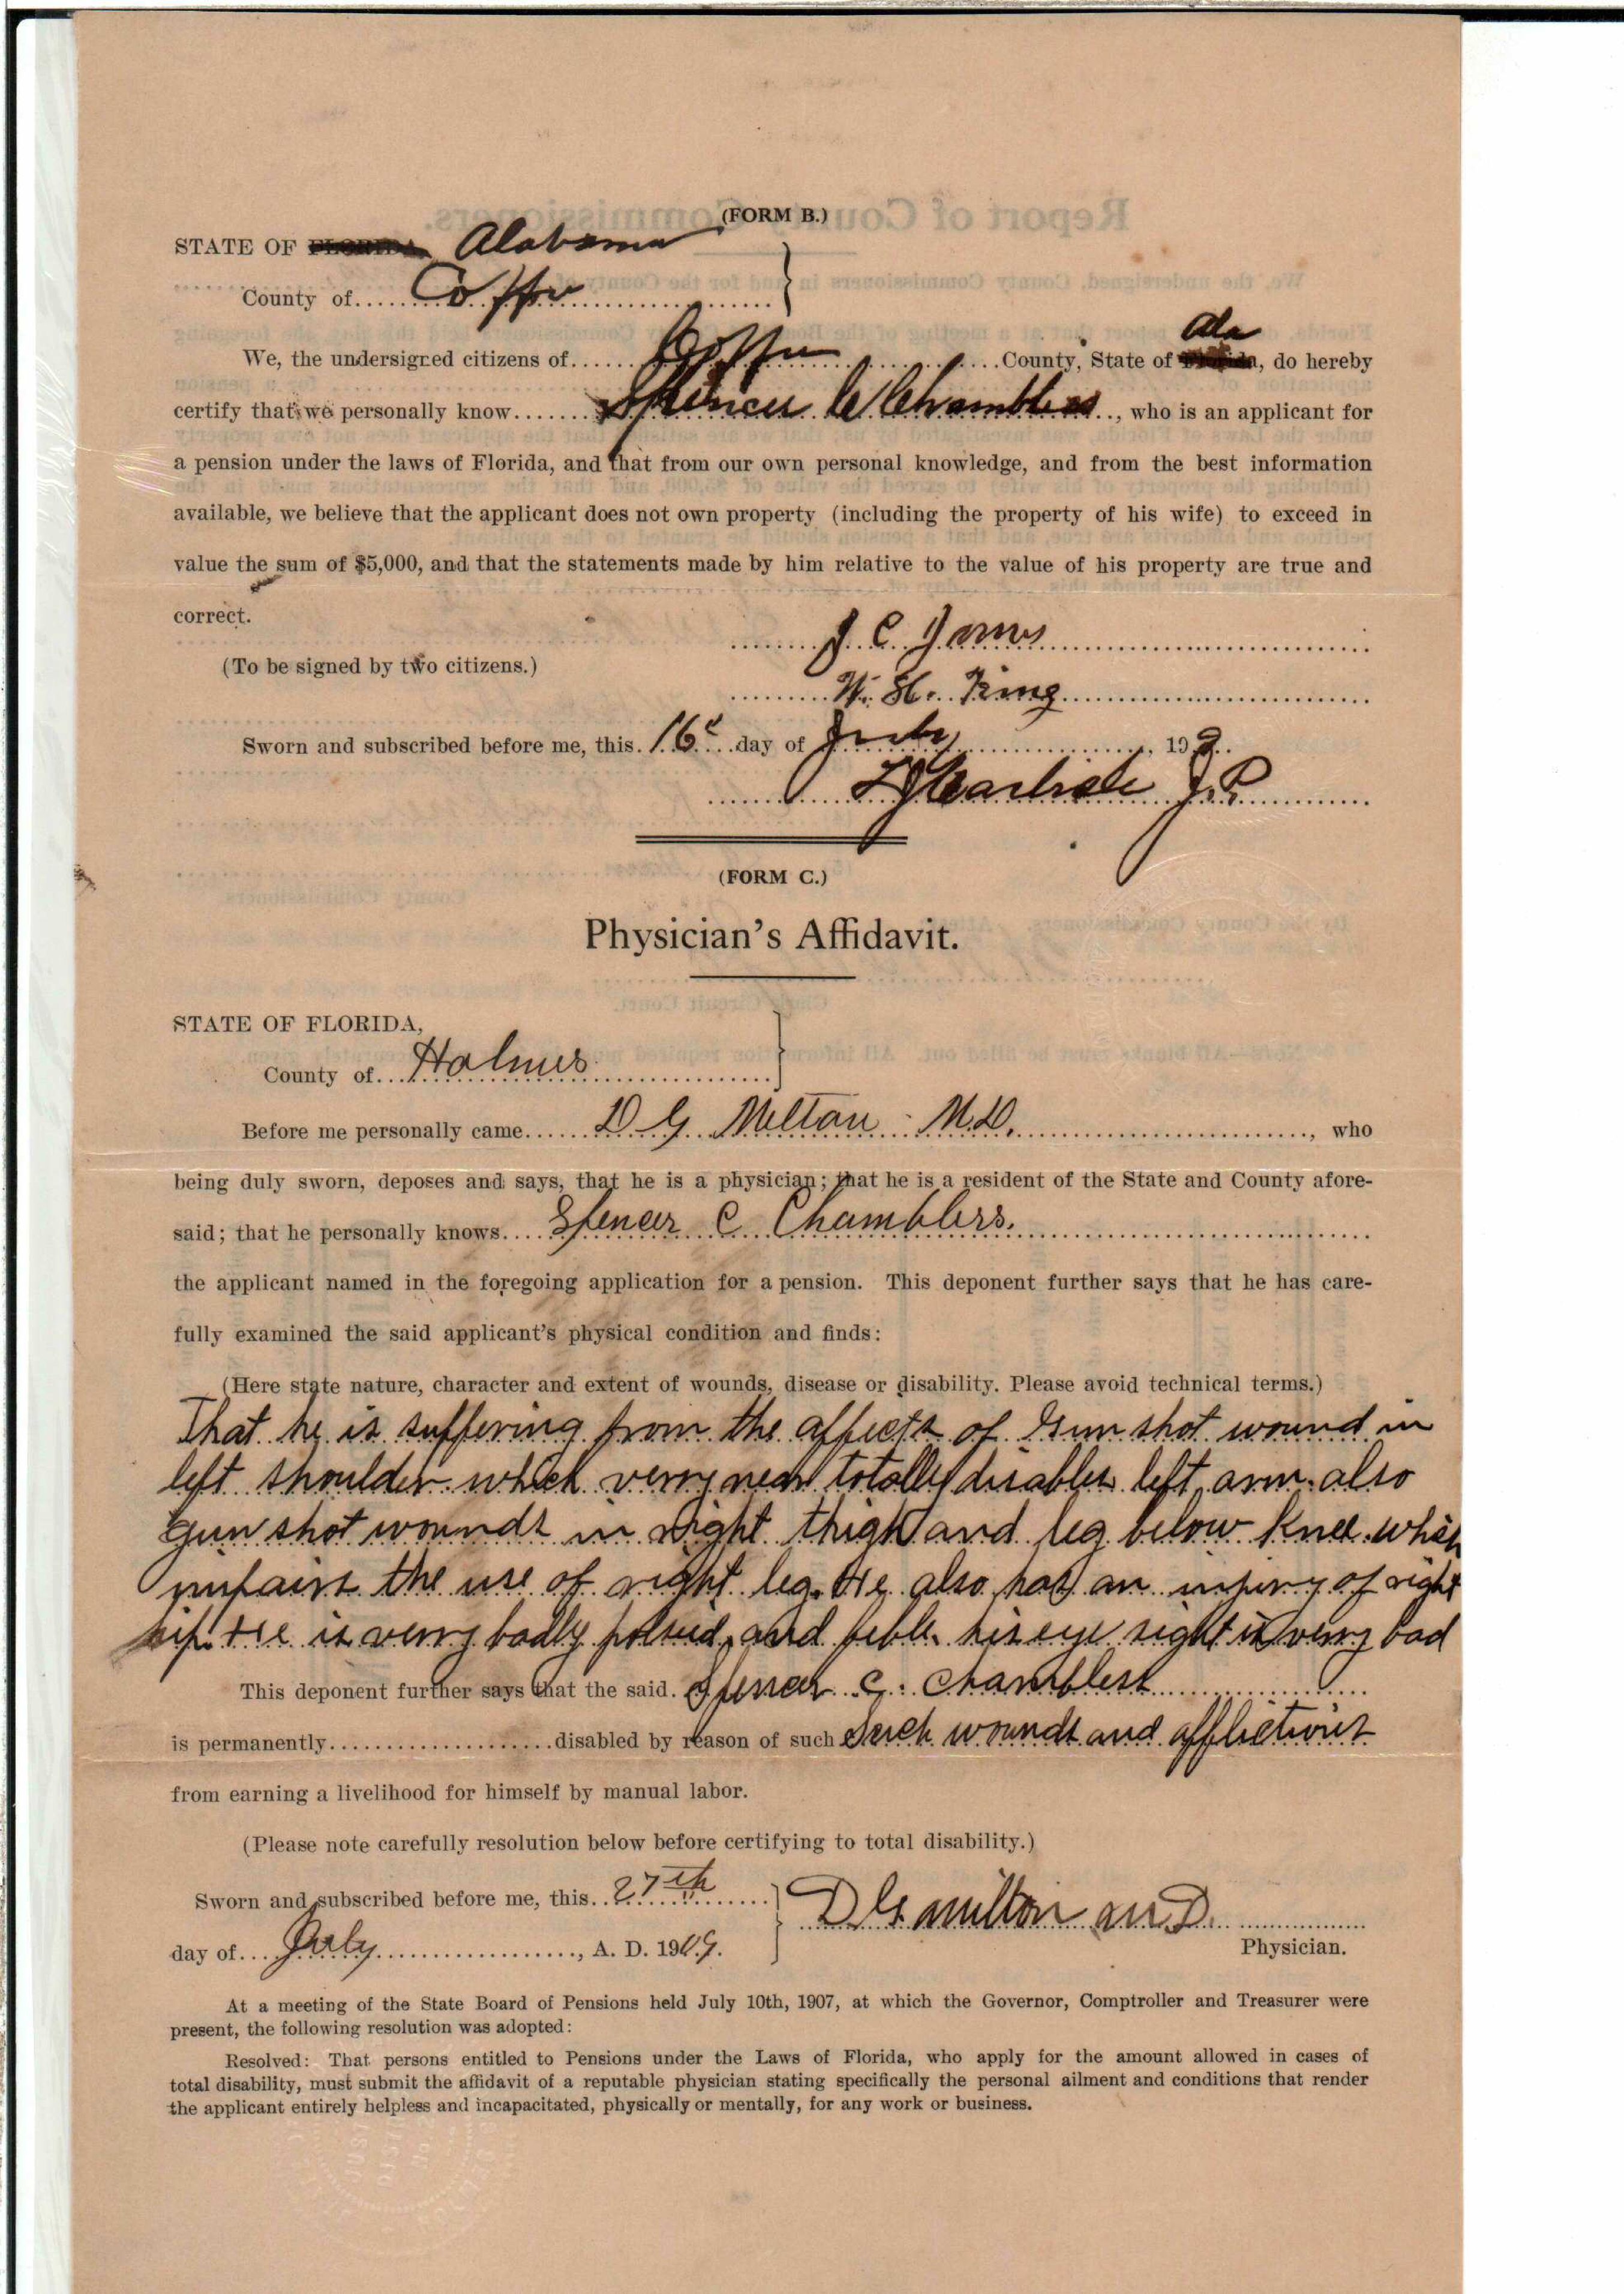 (FORM B.)
STATE OF FLORIDA Alabama
County of Coffee
Ala
We, the undersigned citizens of Coffee County, State of Florida, do hereby
certify that we personally know Spencer C Chambless, who is an applicant for
a pension under the laws of Florida, and that from our own personal knowledge, and from the best information
available, we believe that the applicant does not own property (including the property of his wife) to exceed in
value the sum of $5,000, and that the statements made by him relative to the value of his property are true and
correct.
J. C.
(To be signed by two citizens.)
W. H. King
Sworn and subscribed before me, this 16 day of July, 19 9
Carlisle J.P.
(FORM C.)
Physician's Affidavit.
STATE OF FLORIDA,
County of Holmes
Before me personally came D G Melton M.D., who
being duly sworn, deposes and says, that he is a physician; that he is a resident of the State and County afore-
said; that he personally knows Spencer C Chambless.
the applicant named in the foregoing application for a pension. This deponent further says that he has care-
fully examined the said applicant's physical condition and finds:
(Here state nature, character and extent of wounds, disease or disability. Please avoid technical terms.)
That he is suffering from the affects of Gun shot wound in
left shoulder which verry near totally disables left arm. also
Gun shot wounds in right thigh and leg below knee. which
impairs the use of right leg. He also has an injury of right
hip. He is verry badly palsied, and feble. his eye sight is verry bad
This deponent further says that the said Spencer C. Chambless
is permanently disabled by reason of such Such wounds and afflictions
from earning a livelihood for himself by manual labor.
(Please note carefully resolution below before certifying to total disability.)
Sworn and subscribed before me, this 27th
D G Milton M.D.
day of July, A. D. 1909.
Physician.
At a meeting of the State Board of Pensions held July 10th, 1907, at which the Governor, Comptroller and Treasurer were
present, the following resolution was adopted:
Resolved: That persons entitled to Pensions under the Laws of Florida, who apply for the amount allowed in cases of
total disability, must submit the affidavit of a reputable physician stating specifically the personal ailment and conditions that render
the applicant entirely helpless and incapacitated, physically or mentally, for any work or business.